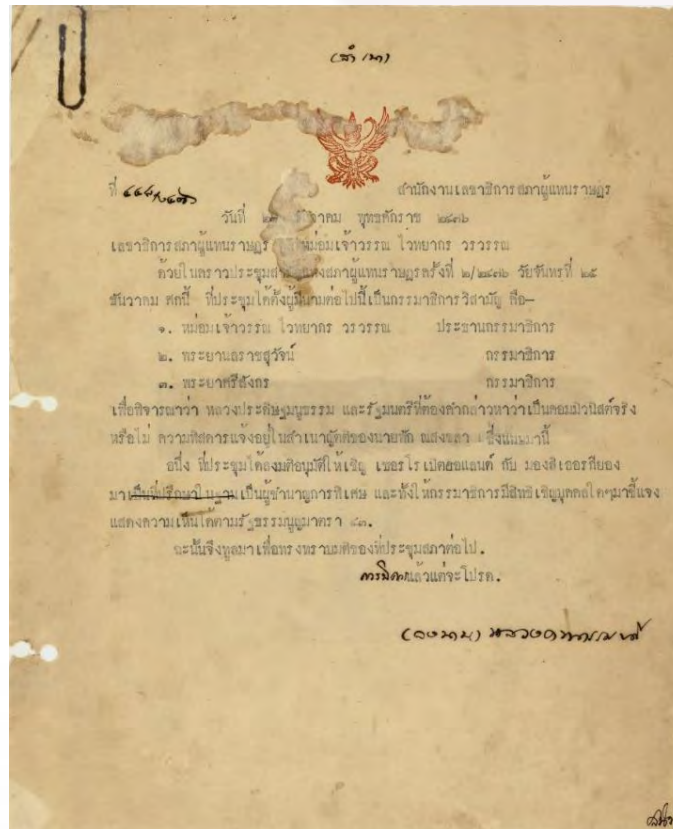 (สำเนา)
ที่ สำนักงานเลขาธิการสภาผู้แทนราษฎร
วันที่ ธันวาคม พุทธศักราช ๒๔๗๖
เลขาธิการสภาผู้แทนราษฎร หม่อมเจ้าวรรณ ไวทยากร วรวรรณ
ด้วยในคราวประชุมสภาผู้แทนราษฎรครั้งที่ ๒/๒๔๗๖ วันจันทรที่ ๒๕
ธันวาคม ศกนี้ ที่ประชุมได้ตั้งผู้มีนามต่อไปนี้เป็นกรรมาธิการวิสามัญ คือ—
๑. หม่อมเจ้าวรรณ ไวทยากร วรวรรณ ประธานกรรมาธิการ
๒. พระยานลราชสุวัจน์ กรรมาธิการ
๓. พระยาศรีสังกร กรรมาธิการ
เพื่อพิจารณาว่า หลวงประดิษฐมนูธรรม และรัฐมนตรีที่ต้องคำกล่าวหาว่าเป็นคอมมิวนิสต์จริง
หรือไม่ ความพิสดารแจ้งอยู่ในสำเนาญัตติของนายทัก ณสงขลา ซึ่งแนบมานี้
อนึ่ง ที่ประชุมได้ลงมติอนุมัติให้เชิญ เซอรโรเบิตฮอแลนด์ กับ มองสิเออร์กียอง
มาเป็นที่ปรึกษาในฐานเป็นผู้ชำนาญการพิเศษ และทั้งให้กรรมาธิการมีสิทธิเชิญบุคคลใดๆมาชี้แจง
แสดงความเห็นได้ตามรัฐธรรมนูญมาตรา ๔๓.
ฉะนั้นจึงทูลมาเพื่อทรงทราบมติของที่ประชุมสภาต่อไป.
ควรมิควรแล้วแต่จะโปรด.
(ลงนาม)